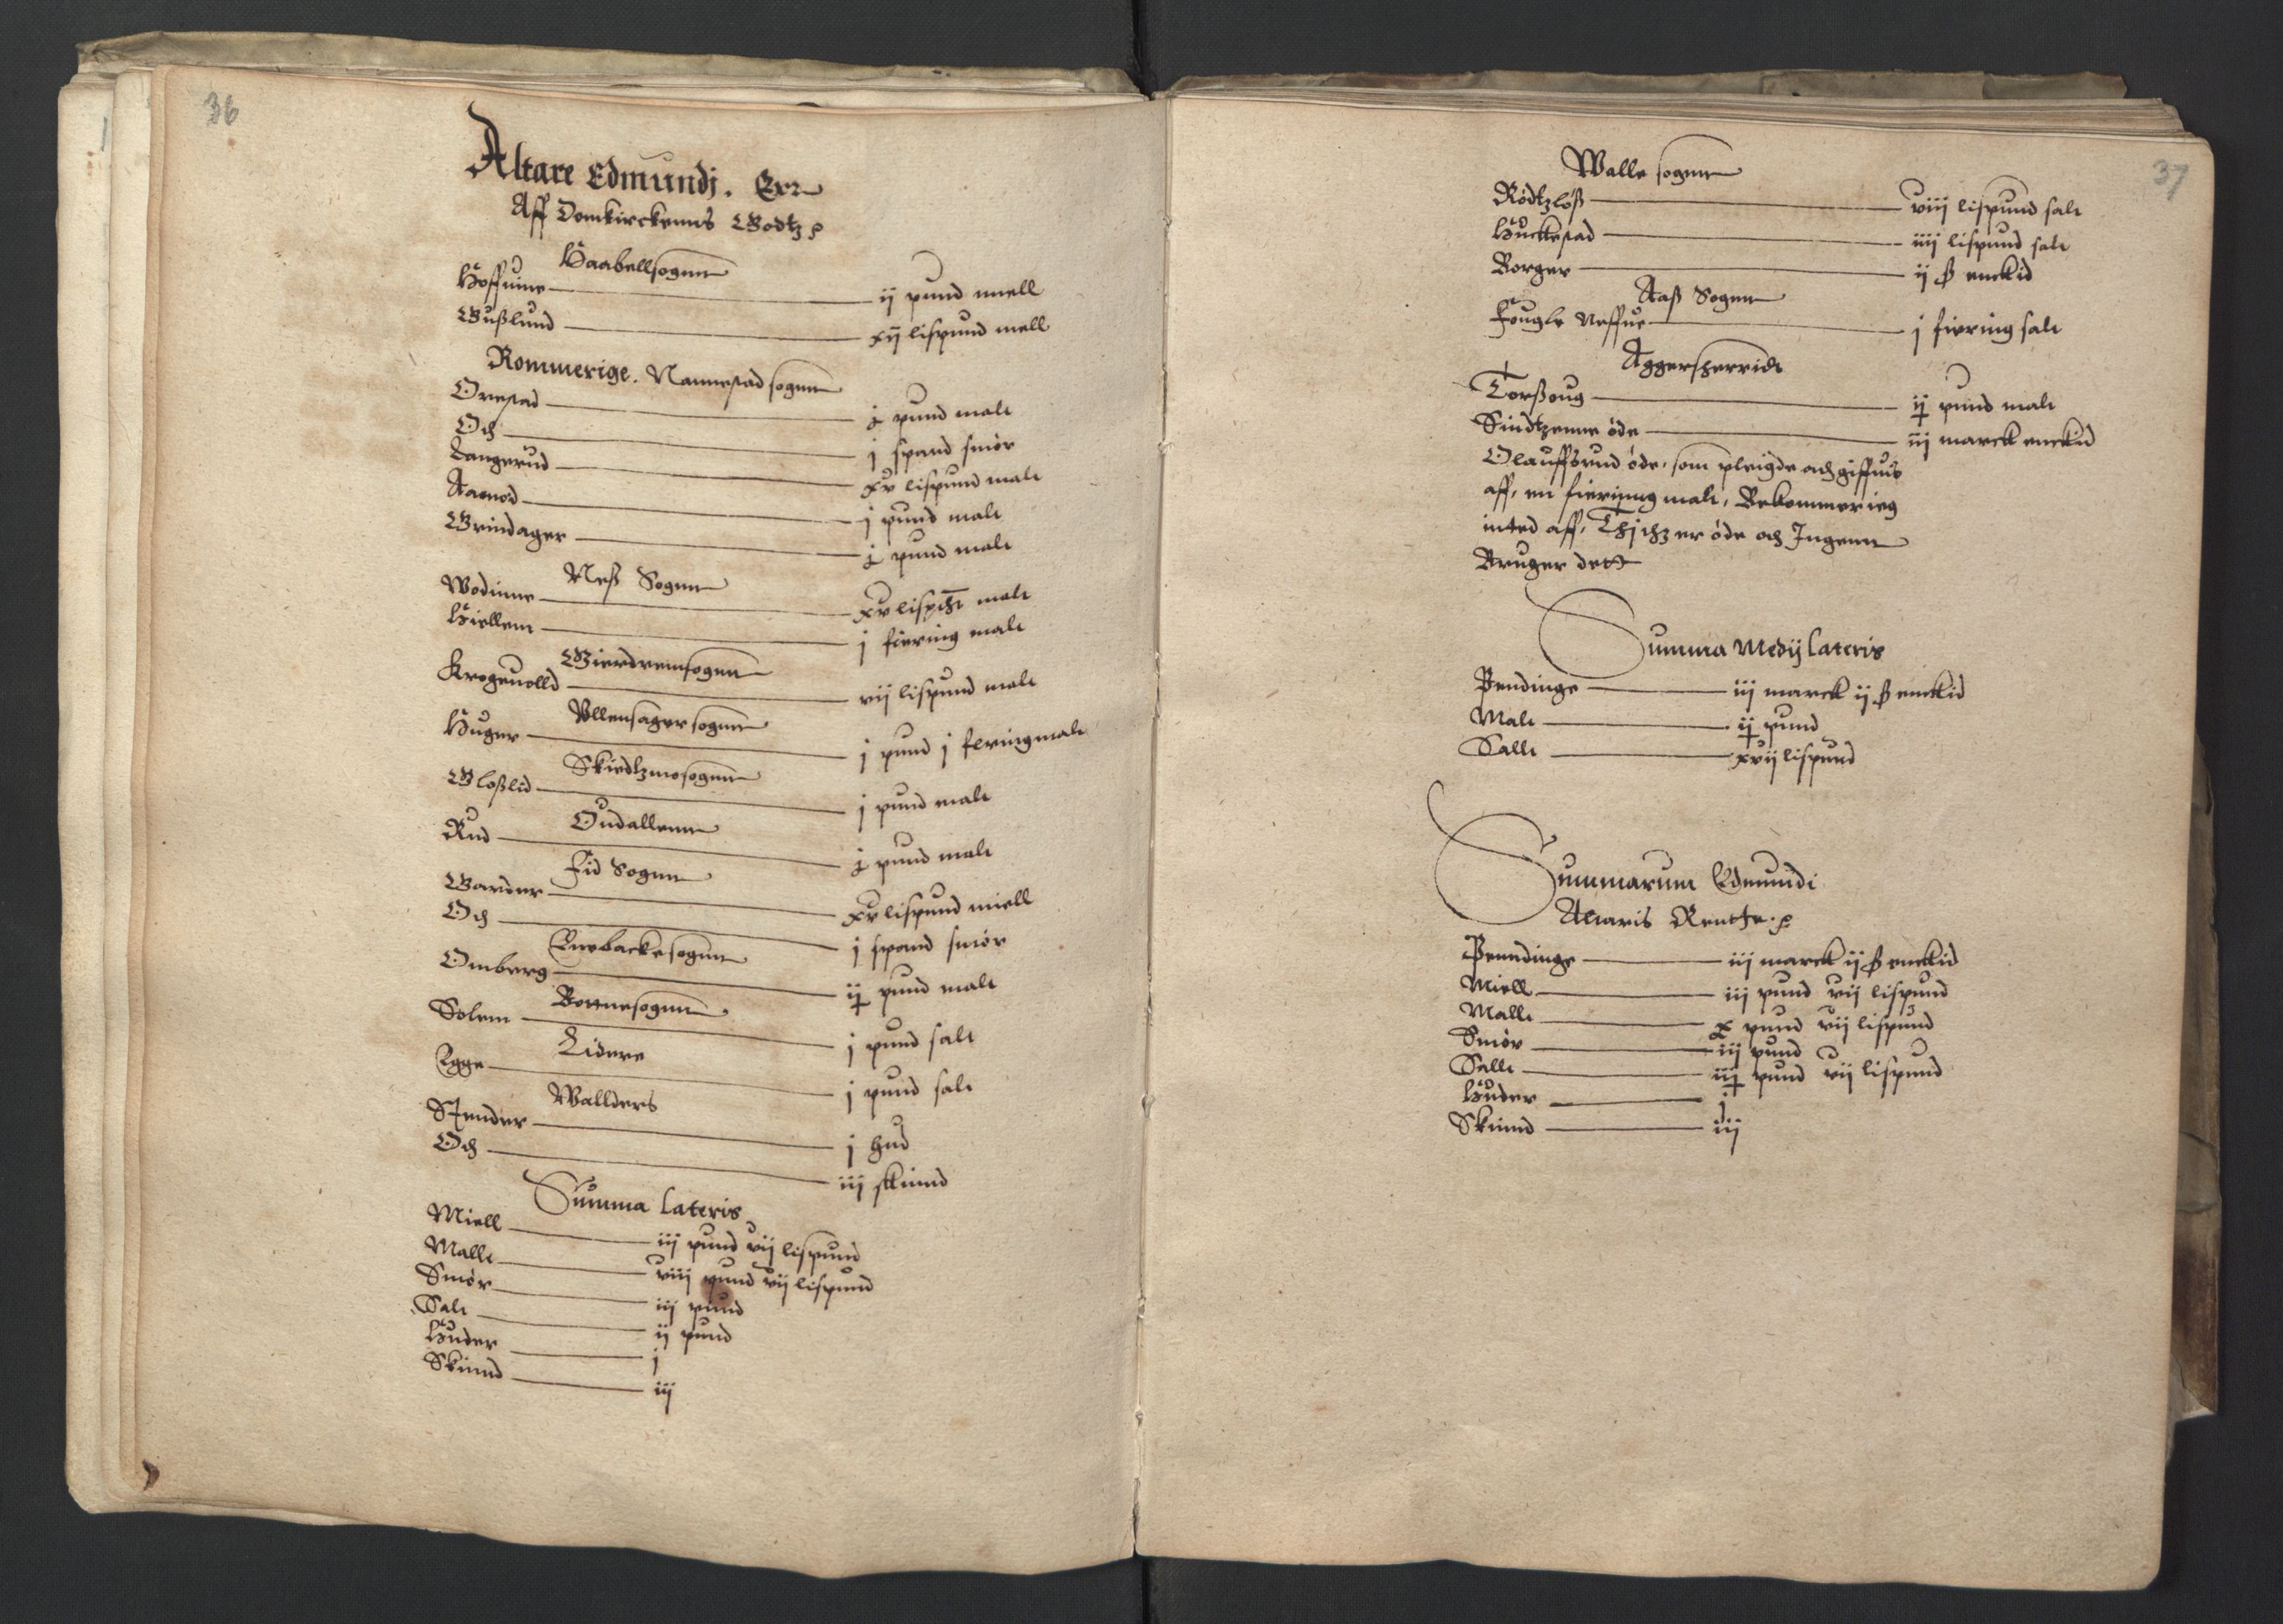 36
Altare Edmundj. Err
Aff Domkirckenns Godtz
Haabellsognn
Hoffuine ij pund miell
Gußlund xij lispund mell
Rommerige. Nannestad sognn
Orestad j pund malt
Och j spand smör
Langerud xv lispund malt
Aamod j pund malt
Grindager j pund malt
Neß Sognn
Wodinne xv lispd malt
Hiellem j fiering malt
Gierdremsognn
Krogeuolld vij lispund malt
Vllensagersognn
Huger j pund j feringmalt
Skiedtzmosognn
Gloßlid j pund malt
Oudallenn
Rud j pund malt
Eid Sognn
Garder xv lispund miell
Och j spand smör
Enebackesognn
Omberg ij pund malt
Bottnesognn
Solem j pund salt
Lidere
Egge j pund salt
Wallders
Stender j hud
Och iij skinnd
Summa Lateris
Miell iij pund vij lispund
Mallt viij pund vij lispund
Smör iij pund
Salt ij pund
Huder j
Skinnd iij
37
Walle sognn
Rödtzlöß viij lispund salt
Huckestad iiij lispund salt
Borger ij ß enckid
Aaß Sognn
Fougle Neffue j fiering salt
Aggersherridt
Torßoug ij pund malt
Sindtzenne öde iij marck enckid
Olauffsrud öde, som pleigde och giffuis
aff, en fierinng malt, Bekommer ieg
inted aff, Thj thz er öde och Ingenn
Bruger dett
Summa Medij Lateris
Pendinge iij marck ij ß enckid
Malt ij pund
Sallt xvij lispund
Summarum Edmundi
Altaris Rentthe.
Penndinge iij marck ij ß enckid
Miell iij pund vij lispund
Mallt x pund vij lispund
Smör iij pund
Sallt iij pund vij lispund
Huder j
Skinnd iij